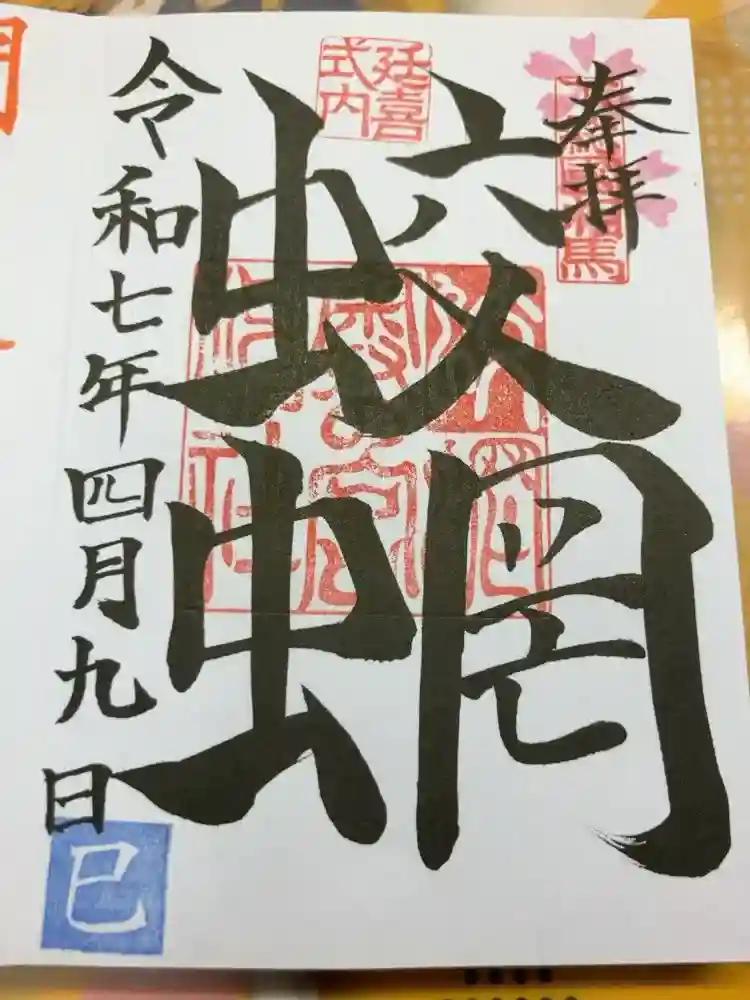 奉拝
下總國相馬
延喜
式内
蛟蝄
令和七年四月九日
巳